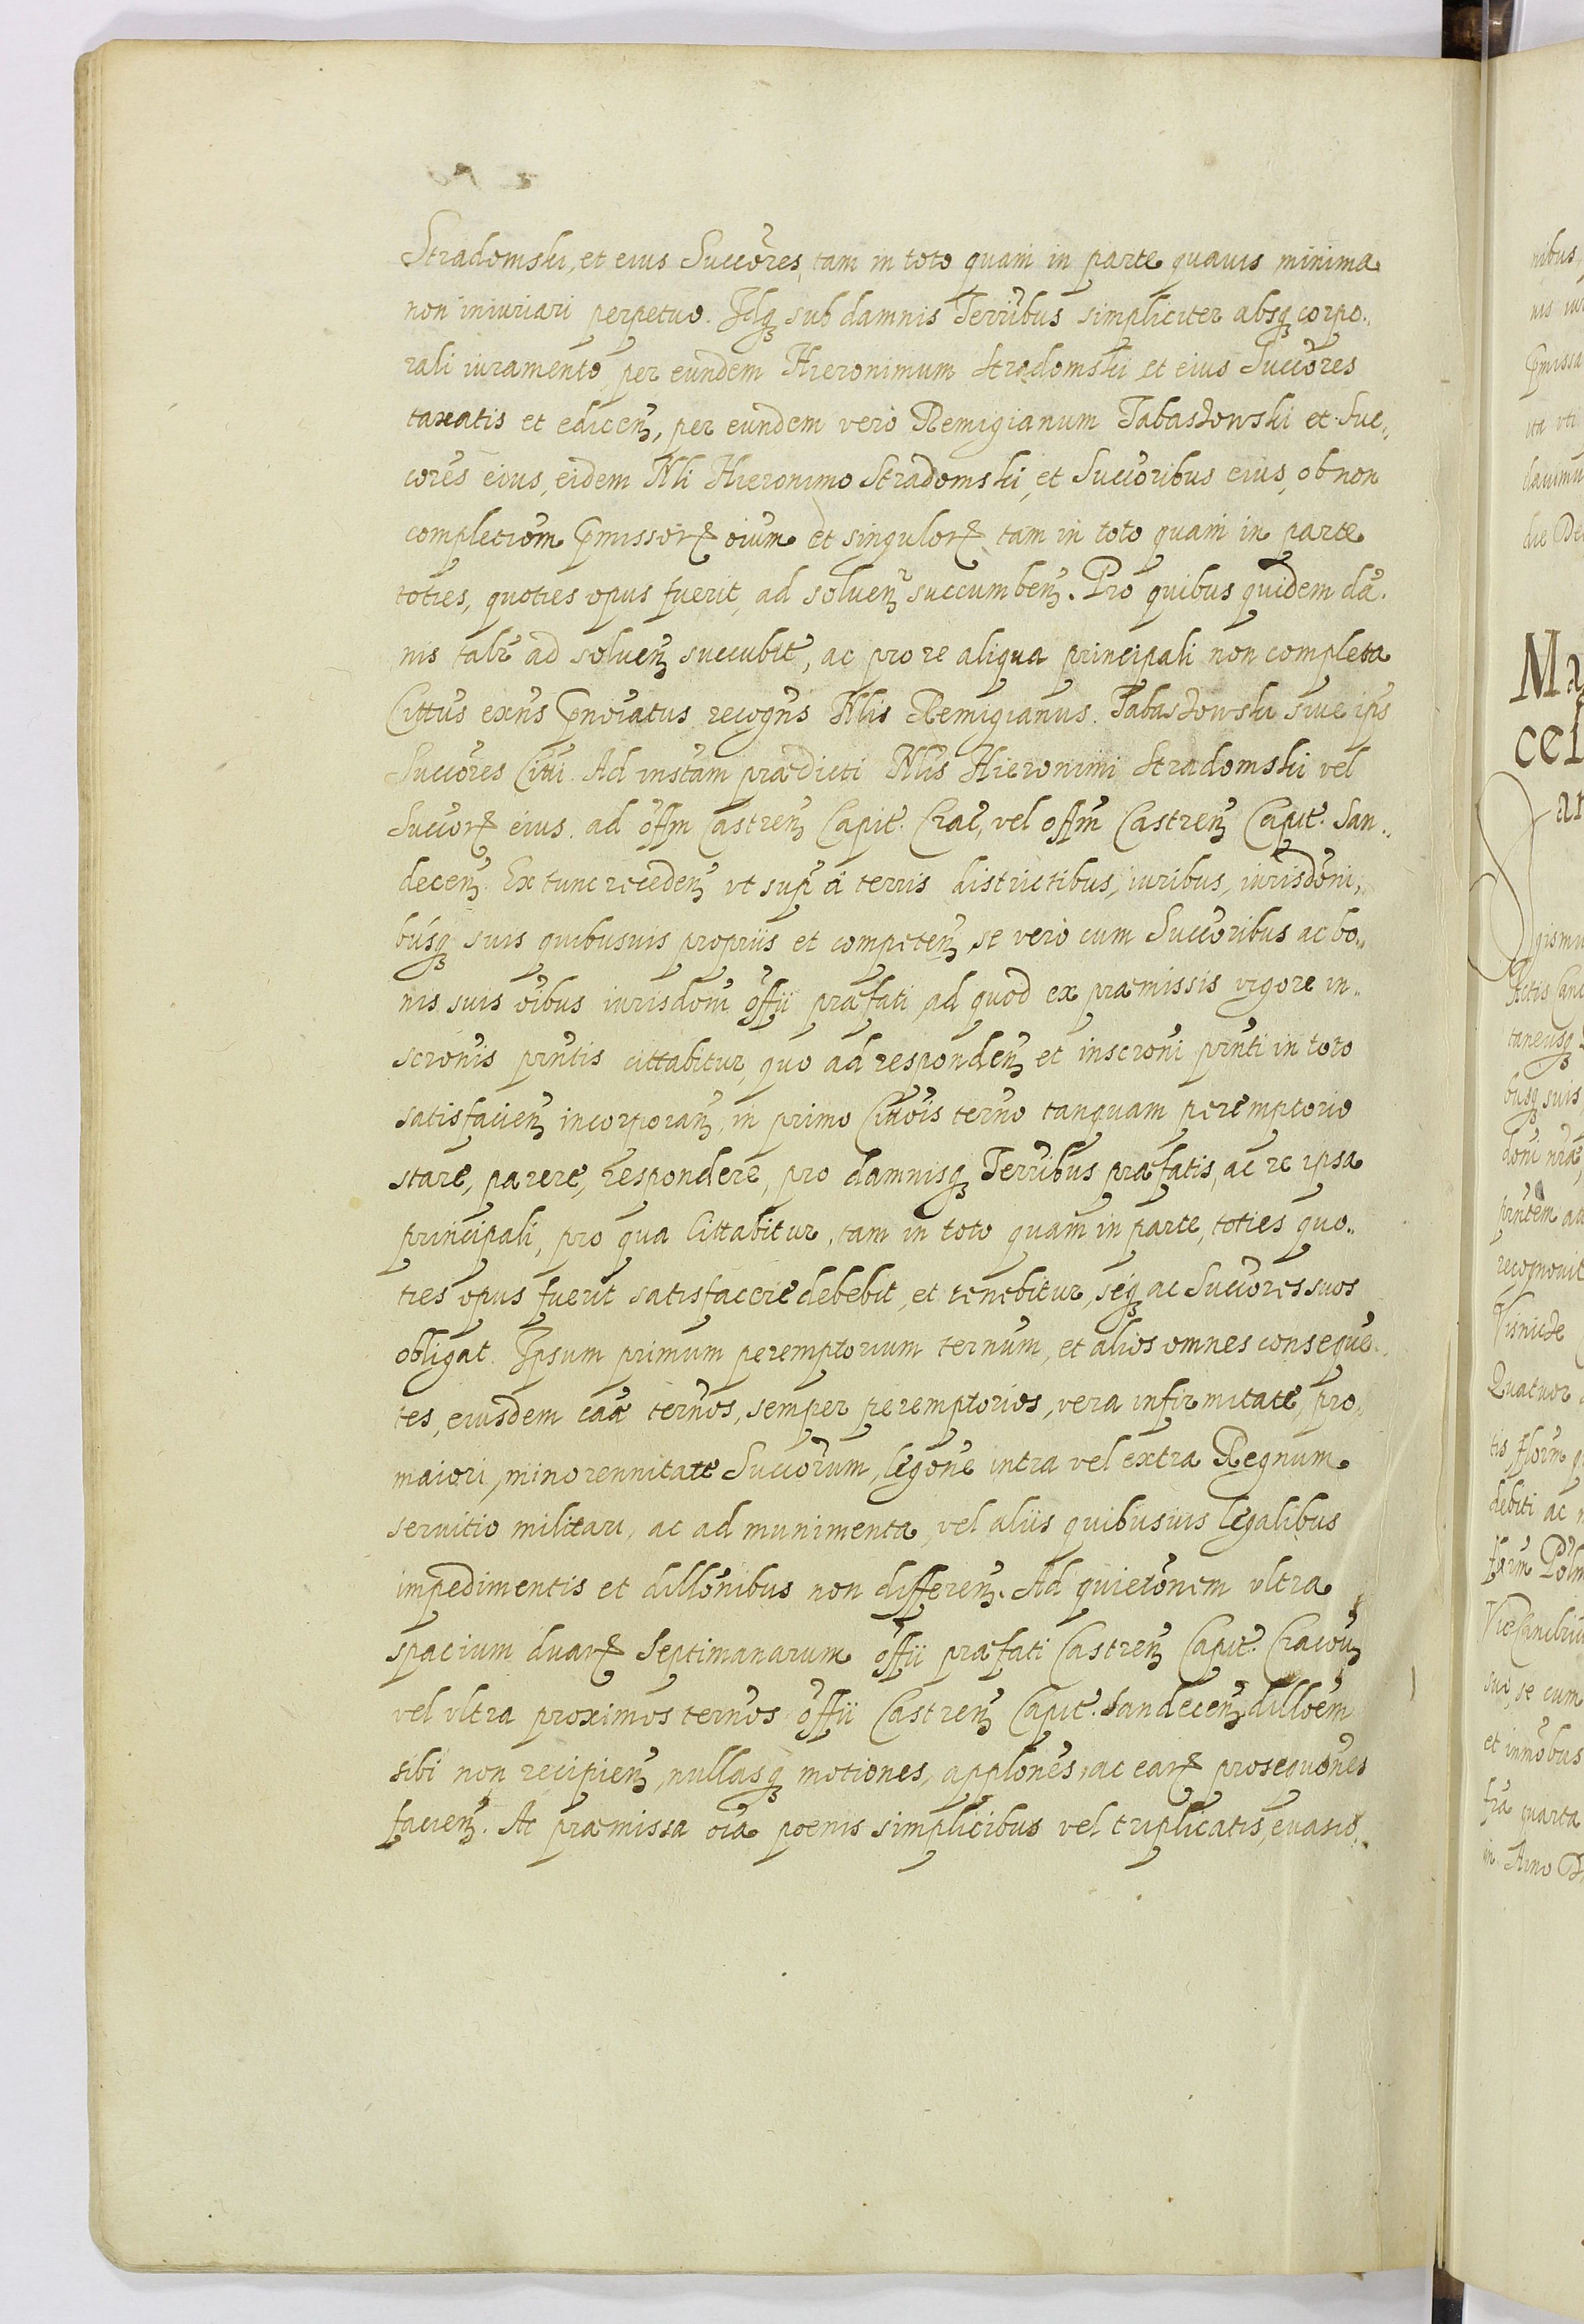 Stradomski, et eius Succores, tam in toto quam in parte quauis minima
non iniuriari perpetuo. Idqꝫ sub damnis Terribus simpliciter absqꝫ corpo„
rali iuramento, per eundem Hieronimum Stradomski et eius Succores
taxatis et edicenꝫ, per eundem vero Remigianum Jabaszowski et Suc„
cores eius, eidem Nli Hieronimo Stradomski, et Succoribus eius, ob non
completiom pmissorꝝ oium et singulorꝝ tam in toto quam in parte
toties, quoties opus fuerit, ad soluenꝫ succumbenꝫ. Pro quibus quidem dā.
nis talr ad soluenꝫ succubit, ac pro re aliqua principali non completa
Cittus exns pnoiatus recogns Nlis Remigianus Jabaszowski siue ips
Succores Citti. Ad instam prædicti Nlis Hieronimi Stradomski vel
Succorꝝ eius. ad offm Castrenꝫ Capit. Crac, vel offm Castrenꝫ Capit. San„
decenꝫ. Ex tunc recedenꝫ vt sup a terris districtibus, iuribus, iurisdoni„
busqꝫ suis quibusuis propriis et competenꝫ, se vero cum Succoribus ac bo„
nis suis oibus iurisdoni offii præfati, ad quod ex præmissis vigore in„
scronis prntis cittabitur, quo ad respondenꝫ et inscroni prnti in toto
satisfacienꝫ incorporanꝫ, in primo Cittois terno tanquam peremptorio
stare, parere, respondere, pro damnisqꝫ Terribus præfatis, ac re ipsa
principali, pro qua Cittabitur, tam in toto quam in parte, toties quo„
ties opus fuerit satisfaccre debebit, et tenebitur, seqꝫ ac Succores suos
obligat. Ipsum primum peremptorium ternum, et alios omnes conseque„
tes, eiusdem cāæ ternos, semper peremptorios, vera infirmitate, pro„
maiori, minorennitate Succorum, legone intra vel extra Regnum
seruitio militari, ac ad munimenta, vel aliis quibusuis legalibus
impedimentis et dillonibus non differenꝫ. Ad quietonem vltra
spacium duarꝝ Septimanarum offii præfati Castrenꝫ Capit. Cracouꝫ
vel vltra proximos ternos offii Castrenꝫ Capit. Sandecenꝫ dilloem
sibi non recipienꝫ, nullasqꝫ motiones, applones, ac earꝝ prosequones
facienꝫ. At præmissa oia poenis simplicibus vel triplicatis, euasio„